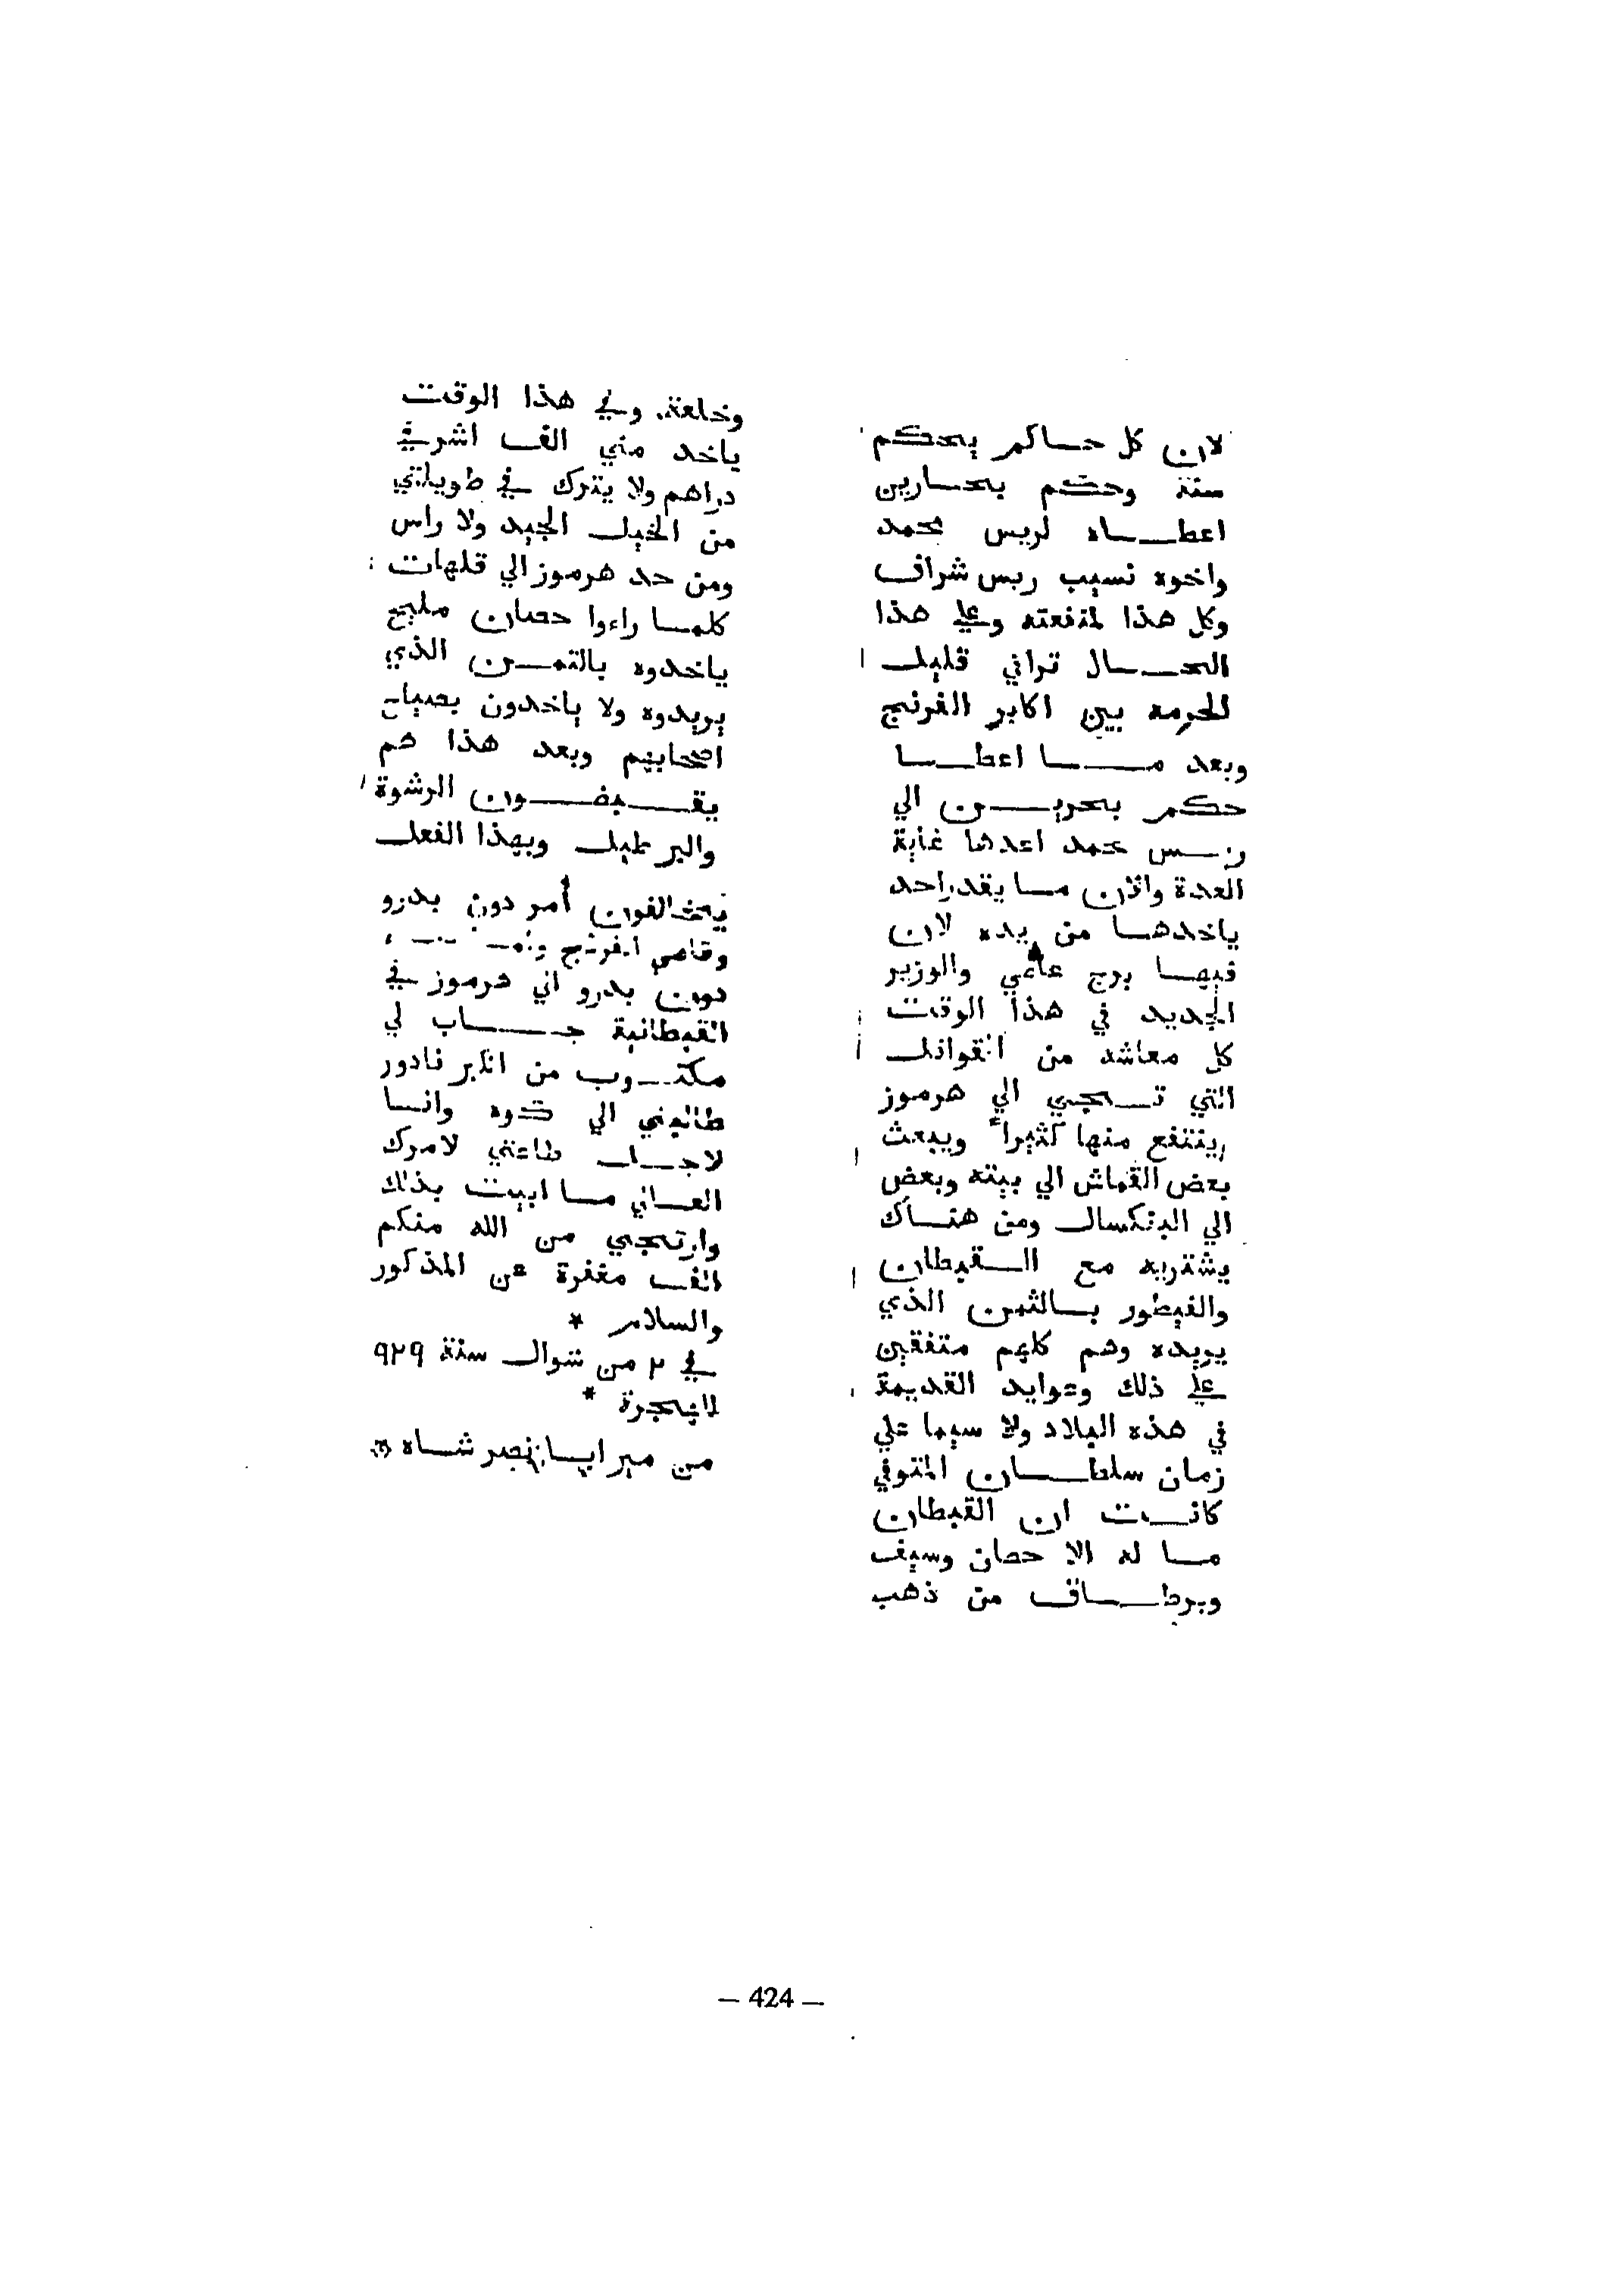 لان كل حاكم يحكم
سنة وحكم بحارين
اعطاه لريس محمد
واخوه نسيب ريس شراف
وكل هذا لمنفعته وعلي هذا
الحال تراني قليل
الحرمه بين اكابر الفرنج
وبعد ما اعطا
حكم بحرين الي
ريس محمد اعدها غاية
العدة والان ما يقدر احد
ياخدها من يده لان
فيها برج عامي والوزير
الجديد في هذا الوقت
كل معاشه من القوافل
التي تجي الي هرموز
ينتفع منها كثيرا ويبعث
بعض القماش الي بيته وبعض
الي البنكسال ومن هناك
يشتريه مع القبطان
والفيطور بالثمن الذي
يريده وهم كلهم متفقين
علي ذلك وعوايد القديمة
في هذه البلاد ولا سيما علي
زمان سلطان المتوفي
كانت ان القبطان
ما له الا حصان وسيف
وبرطاق من ذهب
وخلعة. وفي هذا الوقت
ياخد مني الف اشرفي
دراهم ولا يترك في طويلتي
من الخيل الجيد ولا راس
ومن حد هرموز الي قلهات
كلما راءوا حصان مليح
ياخدوه بالثمن الذي
يريدوه ولا ياخدون بصياح
اصحابهم وبعد هذا هم
يقبضون الرشوة
والبرطيل وبهذا الفعل
يخالفون أمر دون بدرو
وقاضي الفرنج
دون بدرو الي هرموز في
القبطانية جاب لي
مكتوب من الكبرنادور
طالبني الي كوه وانا
لاجل طاعتي لامرك
العالي ما ابيت بذلك
وارتجي من الله منكم
الف مغفرة عن المذكور
والسلام *
في ٢ من شوال سنة ٩٢٩
للهجرة *
من مير ابا نصر شاه
— 424 —